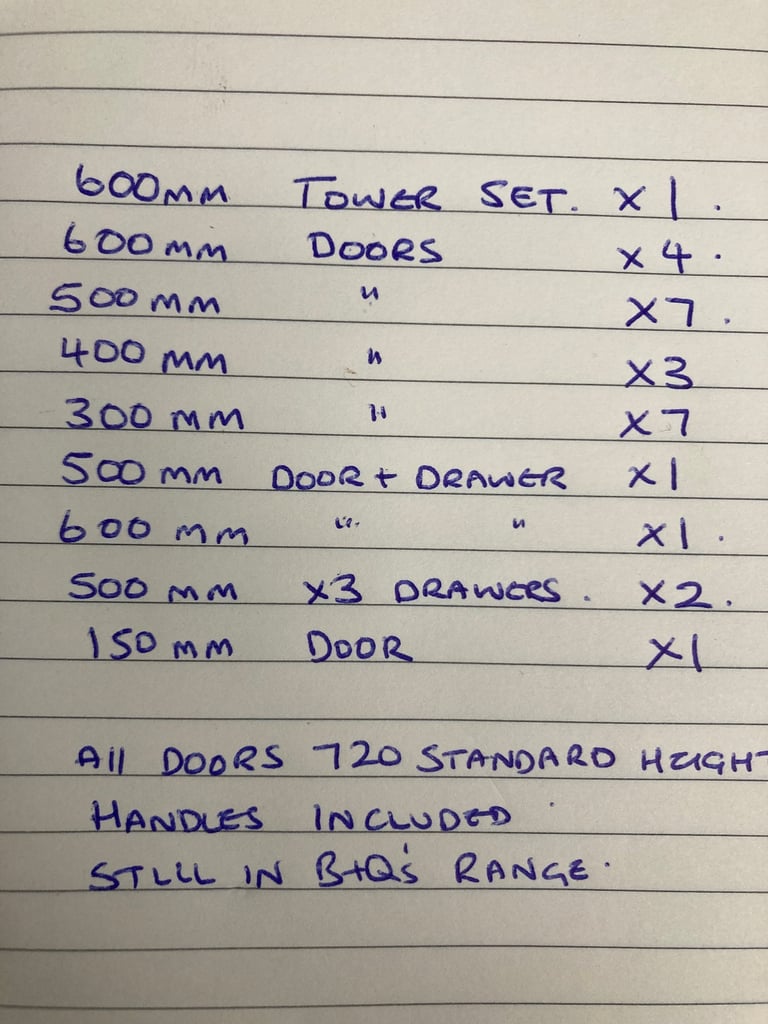 600mm TOWER SET. x 1.
600mm DOORS x 4.
500mm " x7.
400 mm " x3
300 mm " x7
500 mm DOOR + DRAWER x1
600 mm " " x1.
500 mm x3 DRAWERS. x2.
150 mm DOOR x1
All DOORS 720 STANDARD HEIGHT
HANDLES INCLUDED
STILL IN B+Q's RANGE.